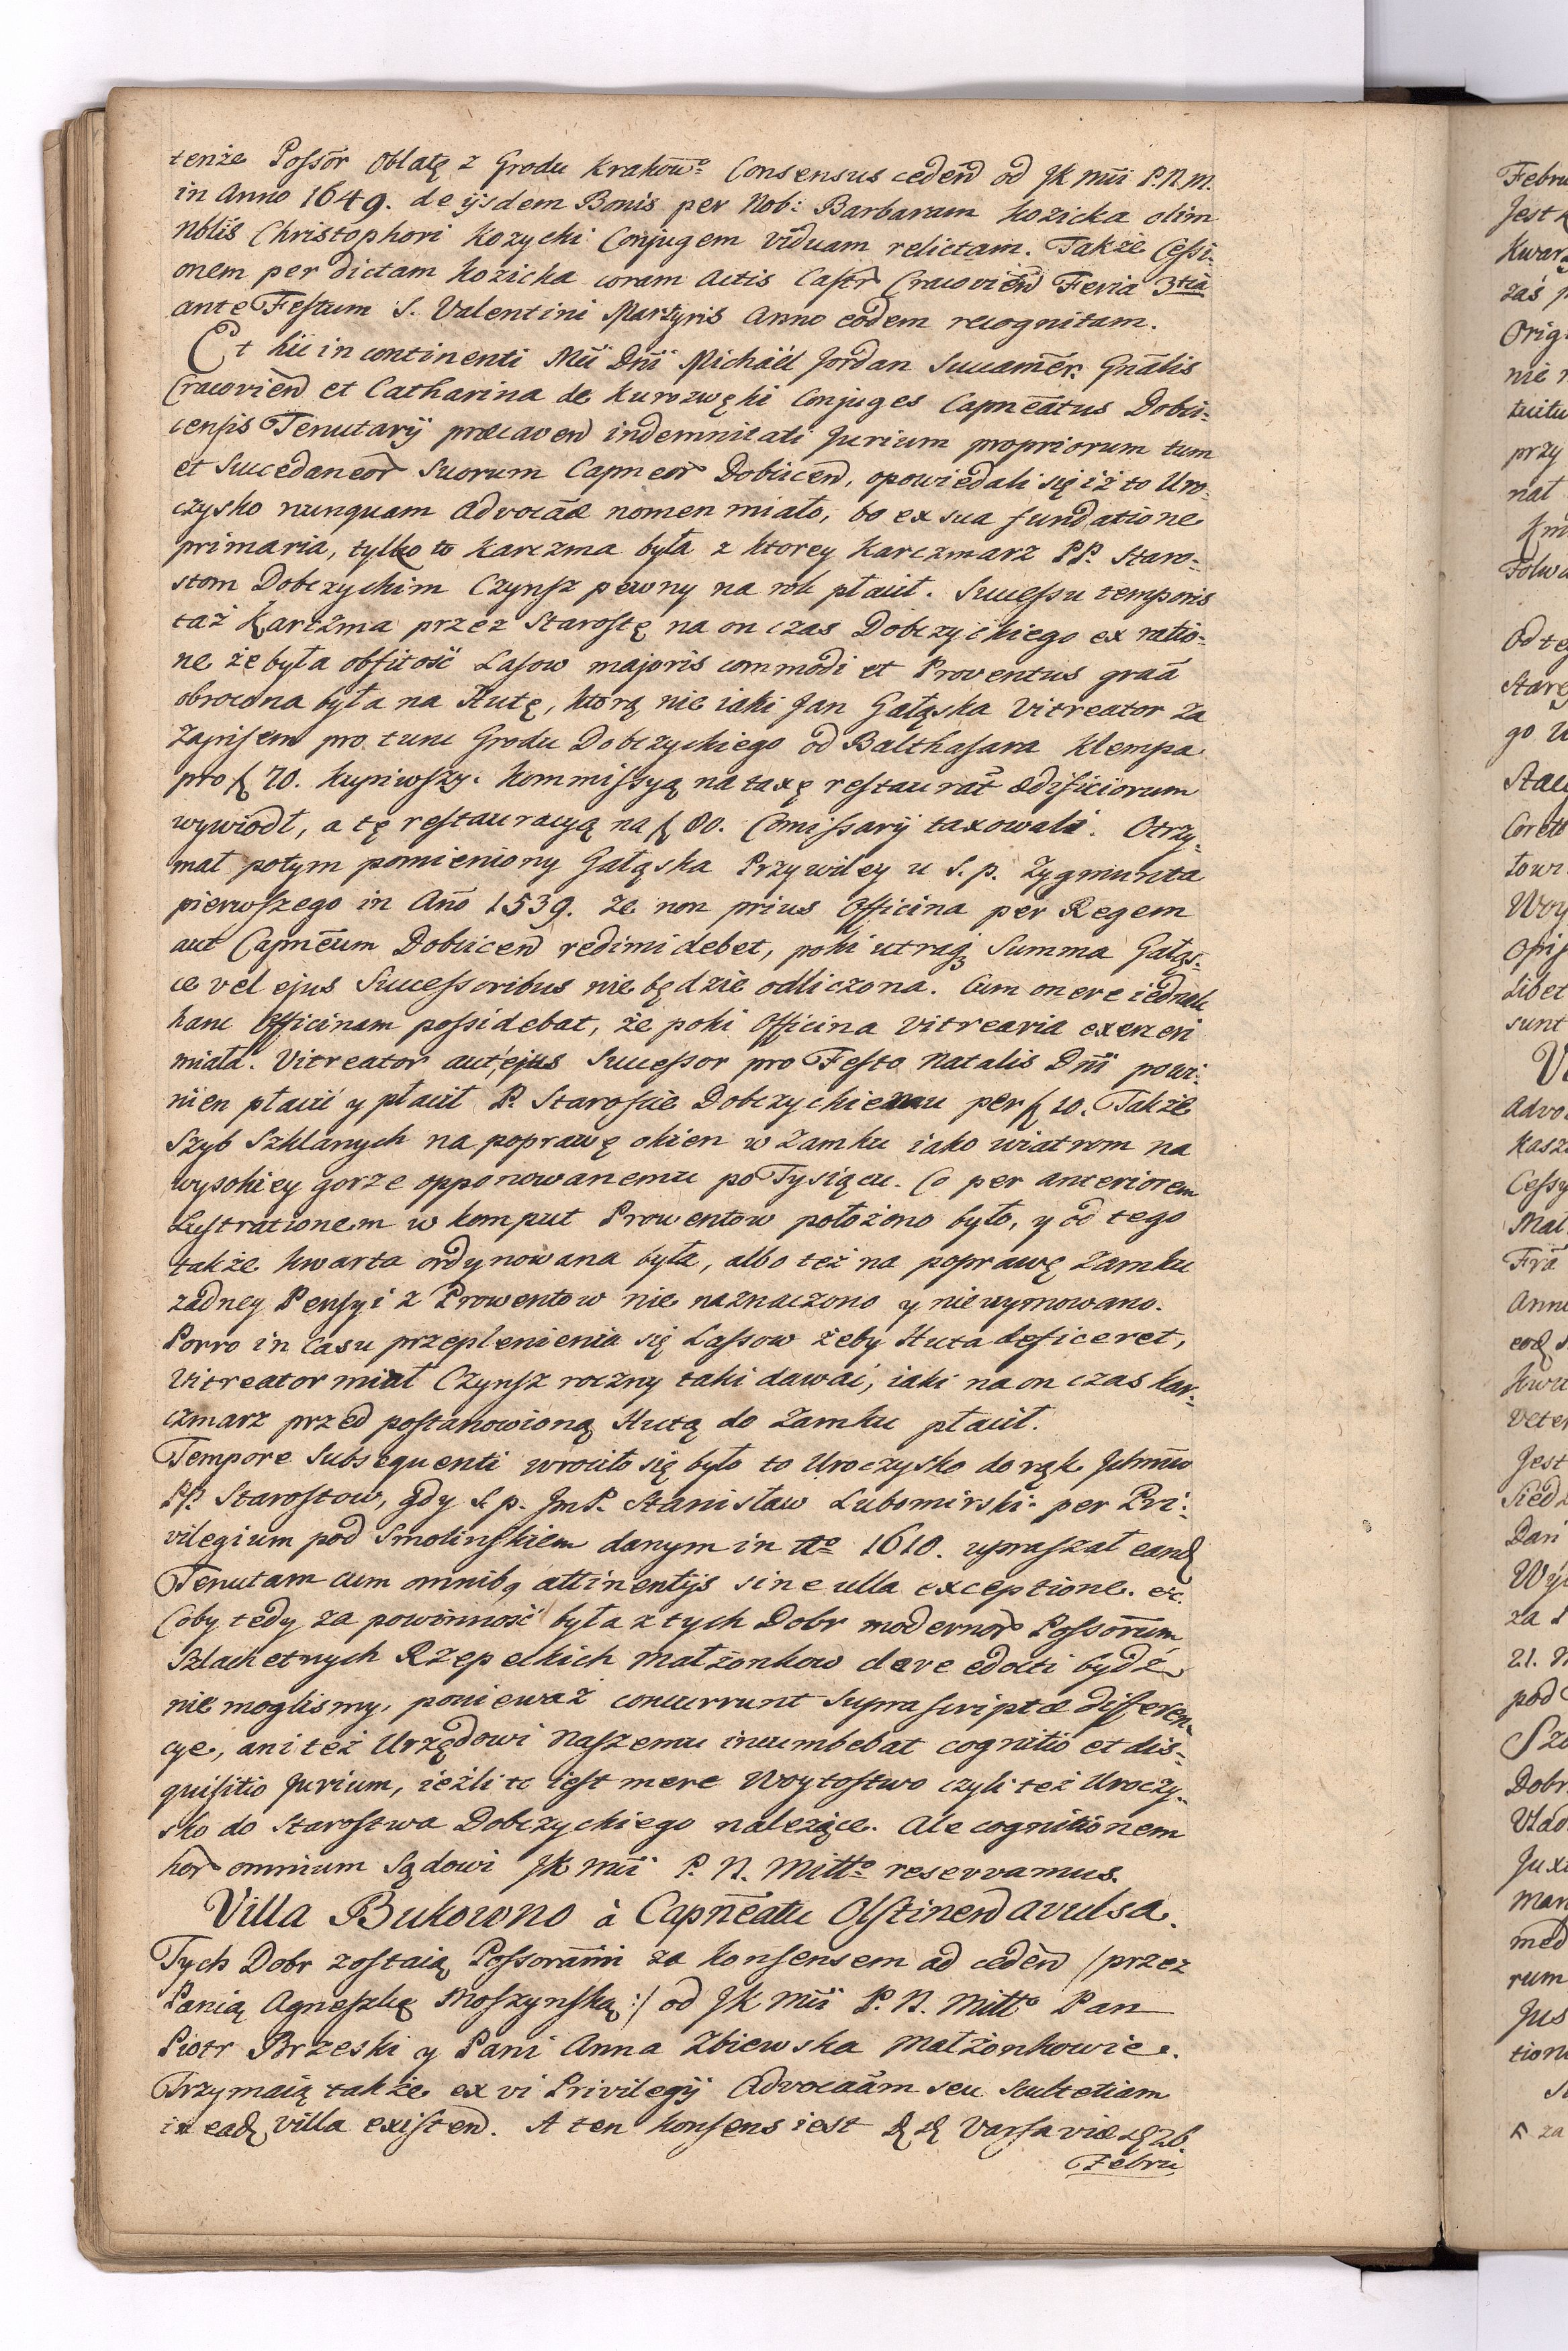 tenże Possōr Oblatę z Grodu Krakowº Consensus cedend od JK Mci P. N. M.
in Anno 1649. de ijsdem Bonis per Nob: Barbaram Kozicka olim
Nblis Christophori Kozycki Conjugem viduam relictam. Także Cessi-
onem per dictam Kozicka coram Actis Castr Cracovien Feria 3tia
ante Festum S. Valentini Martyris Anno eodem recognitam.
Et hic in continenti Mci Dni Michaël Jordan Succamer. Gnalis
Cracovien et Catharina de Kurozwęki Conjuges Capneatus Dobci-
censis Tenutarij præcaven indemnitati Jurium propriorum tum
et Succedaneor Suorum Capneor Dobcicen, opowiedali się iż to Uro-
czysko nunquam Advocaæ nomen miało, bo ex sua fundatione
primaria, tylko to Karczma była z ktorey Karczmarz PP. Staro-
stom Dobczyckim Czynsz pewny na rok płacił. Successu temporis
taż Karczma przez Starostę na on czas Dobczyckiego ex ratio-
ne że była obfitość Lasow majoris commodi et Proventus graā
obrocona była na Hutę, ktorą nie iaki Jan Gałąska Vitreator za
Zapisem pro tunc Grodu Dobczyckiego od Balthasara Klempa
pro f 70. kupiwszy. Kommissyą na taxę restaurat ædificiorum
wywiodł, a tę restauracyą na f 80. Comissarij taxowali. Otrzy-
mał potym pomieniony Gałąska Przywiley u S. p. Zygmunta
pierwszego in Año 1539. Że non prius Officina per Regem
aut Capneum Dobcicen redimi debet, poki utraqz Summa Gałąs-
ce vel ejus Successoribus nie będzie odliczona. Cum onere iednak
hanc Officinam possidebat, że poki Officina vitrearia exerceri
miała. Vitreator aut ejus Successor pro Festo Natalis Dni powi-
nien płacić y płacił P. Staroscie Dobczyckiemu per f 20. Także
Szyb Szklanych na poprawę okien w Zamku iako wiatrom na
wysokiey gorze opponowanemu po Tysiącu. Co per anteriorem
Lustrationem w komput Prowentow położono było, y od tego
także kwarta ordynowana była, albo też na poprawę Zamku
żadney Pensyi z Prowentow nie naznaczono y nie wymowano.
Porro in Casu przeplenienia się Lassow żeby Huta deficeret,
Vitreator miał Czynsz roczny taki dawać, iaki na on czas Kar-
czmarz przed postanowioną Hutą do Zamku płacił.
Tempore Subsequenti wrociło się było to Uroczysko do rąk Jchmciw
PP. Starostow, gdy S. p. Jm P. Stanisław Lubomirski per Pri-
vilegium pod Smolinskiem danym in Aº 1610. upraszał eand
Tenutam cum omnibq attinentijs sine ulla exceptione. etc.
Coby tedy za powinność była z tych Dobr modernor Possorum
Szlachetnych Rzepeckich Małżonkow clare edocti bydź
nie moglismy, ponieważ concurrunt Suprascriptæ differen-
cye, ani też Urzędowi Naszemu incumbebat cognitio et dis-
quisitio Jurium, ieżli to iest mere Woytostwo czyli też Uroczy-
sko do Starostwa Dobczyckiego należące. Ale cognitionem
hor omnium Sądowi JK Mci P. N. Mittº reservamus.
Villa Bukowno à Capneatu Olstinen avulsa.
Tych Dobr zostaią Possorami za Konsensem ad ceden /: przez
Panią Agneszkę Moszynską :/ od JK Mci P. N. Mittº Pan
Piotr Brzeski y Pani Anna Zbiewska Małżonkowie.
Trzymaią także ex vi Privilegij Advocaam seu Scultetiam
in ead villa existen. A ten konsens iest Varsaviæ 26
Febru